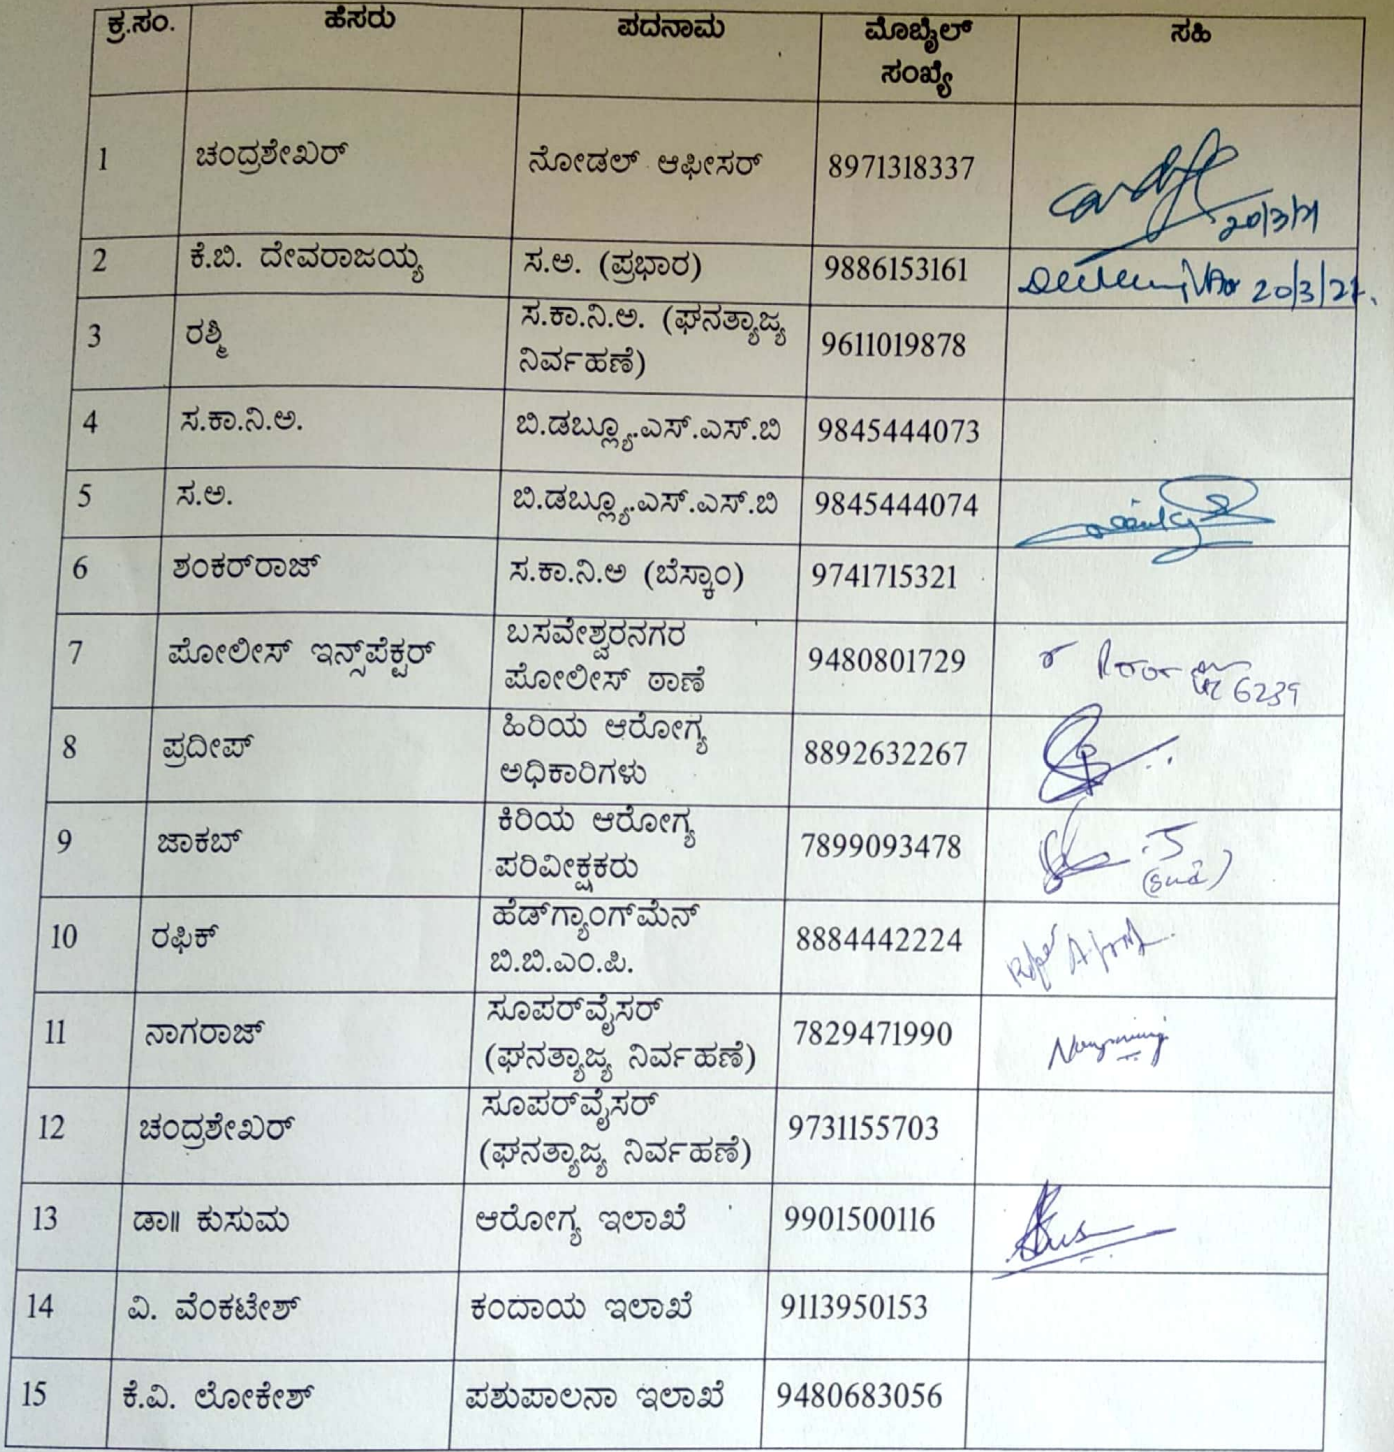 ಕ್ರ.ಸಂ. ಹೆಸರು ಪದನಾಮ ಮೊಬೈಲ್ ಸಂಖ್ಯೆ ಸಹಿ
1 ಚಂದ್ರಶೇಖರ್ ನೋಡಲ್ ಆಫೀಸರ್ 8971318337
20/3/21
2 ಕೆ.ಬಿ. ದೇವರಾಜಯ್ಯ ಸ.ಅ. (ಪ್ರಭಾರ) 9886153161 20/3/21.
3 ರಶ್ಮಿ ಸ.ಕಾ.ನಿ.ಅ. (ಘನತ್ಯಾಜ್ಯ
ನಿರ್ವಹಣೆ) 9611019878
4 ಸ.ಕಾ.ನಿ.ಅ. ಬಿ.ಡಬ್ಲ್ಯೂ.ಎಸ್.ಎಸ್.ಬಿ 9845444073
5 ಸ.ಅ. ಬಿ.ಡಬ್ಲ್ಯೂ.ಎಸ್.ಎಸ್.ಬಿ 9845444074
6 ಶಂಕರ್‌ರಾಜ್ ಸ.ಕಾ.ನಿ.ಅ (ಬೆಸ್ಕಾಂ) 9741715321
7 ಪೋಲೀಸ್ ಇನ್ಸ್‌ಪೆಕ್ಟರ್ ಬಸವೇಶ್ವರನಗರ
ಪೋಲೀಸ್ ಠಾಣೆ 9480801729
6239
8 ಪ್ರದೀಪ್ ಹಿರಿಯ ಆರೋಗ್ಯ
ಅಧಿಕಾರಿಗಳು 8892632267
9 ಜಾಕಬ್ ಕಿರಿಯ ಆರೋಗ್ಯ
ಪರಿವೀಕ್ಷಕರು 7899093478
10 ರಫಿಕ್ ಹೆಡ್‌ಗ್ಯಾಂಗ್‌ಮೆನ್
ಬಿ.ಬಿ.ಎಂ.ಪಿ. 8884442224
11 ನಾಗರಾಜ್ ಸೂಪರ್‌ವೈಸರ್
(ಘನತ್ಯಾಜ್ಯ ನಿರ್ವಹಣೆ) 7829471990
12 ಚಂದ್ರಶೇಖರ್ ಸೂಪರ್‌ವೈಸರ್
(ಘನತ್ಯಾಜ್ಯ ನಿರ್ವಹಣೆ) 9731155703
13 ಡಾ॥ ಕುಸುಮ ಆರೋಗ್ಯ ಇಲಾಖೆ 9901500116
14 ವಿ. ವೆಂಕಟೇಶ್ ಕಂದಾಯ ಇಲಾಖೆ 9113950153
15 ಕೆ.ವಿ. ಲೋಕೇಶ್ ಪಶುಪಾಲನಾ ಇಲಾಖೆ 9480683056